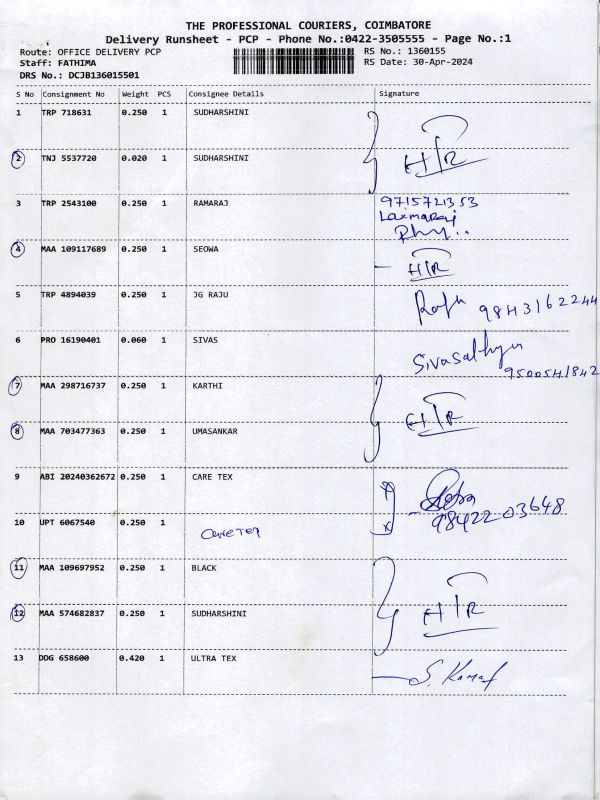 THE PROFESSIONAL COURIERS, COIMBATORE
Delivery Runsheet - PCP - Phone No.:0422-3505555 - Page No.:1
Route: OFFICE DELIVERY PCP RS No.: 1360155
Staff: FATHIMA RS Date: 30-Apr-2024
DRS No.: DCJB136015501
S No Consignment No Weight PCS Consignee Details Signature
1 TRP 718631 0.250 1 SUDHARSHINI
2 TNJ 5537720 0.020 1 SUDHARSHINI H/R
3 TRP 2543100 0.250 1 RAMARAJ 9715721353
Laxmaraj
4 MAA 109117689 0.250 1 SEOWA H/R
5 TRP 4894039 0.250 1 JG RAJU Raju 9843162244
6 PRO 16190401 0.060 1 SIVAS
9500541842
7 MAA 298716737 0.250 1 KARTHI H/R
8 MAA 703477363 0.250 1 UMASANKAR
9 ABI 20240362672 0.250 1 CARE TEX
98422 03648
10 UPT 6067540 0.250 1 Care Tex
11 MAA 109697952 0.250 1 BLACK
12 MAA 574682837 0.250 1 SUDHARSHINI H/R
13 DDG 658600 0.420 1 ULTRA TEX S. Kamal